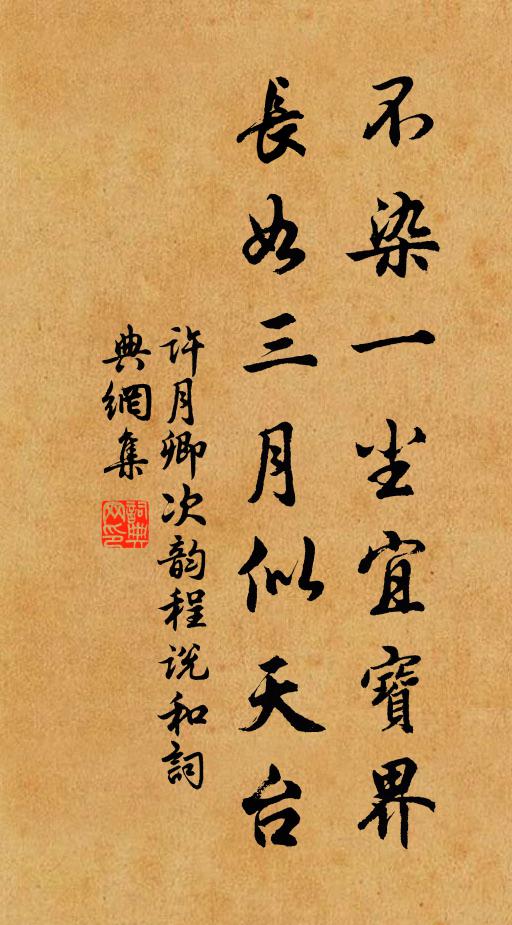 不染一尘宜寶界
長如三月似天台
許月卿次韵程说和詞
典網集
詞典网印